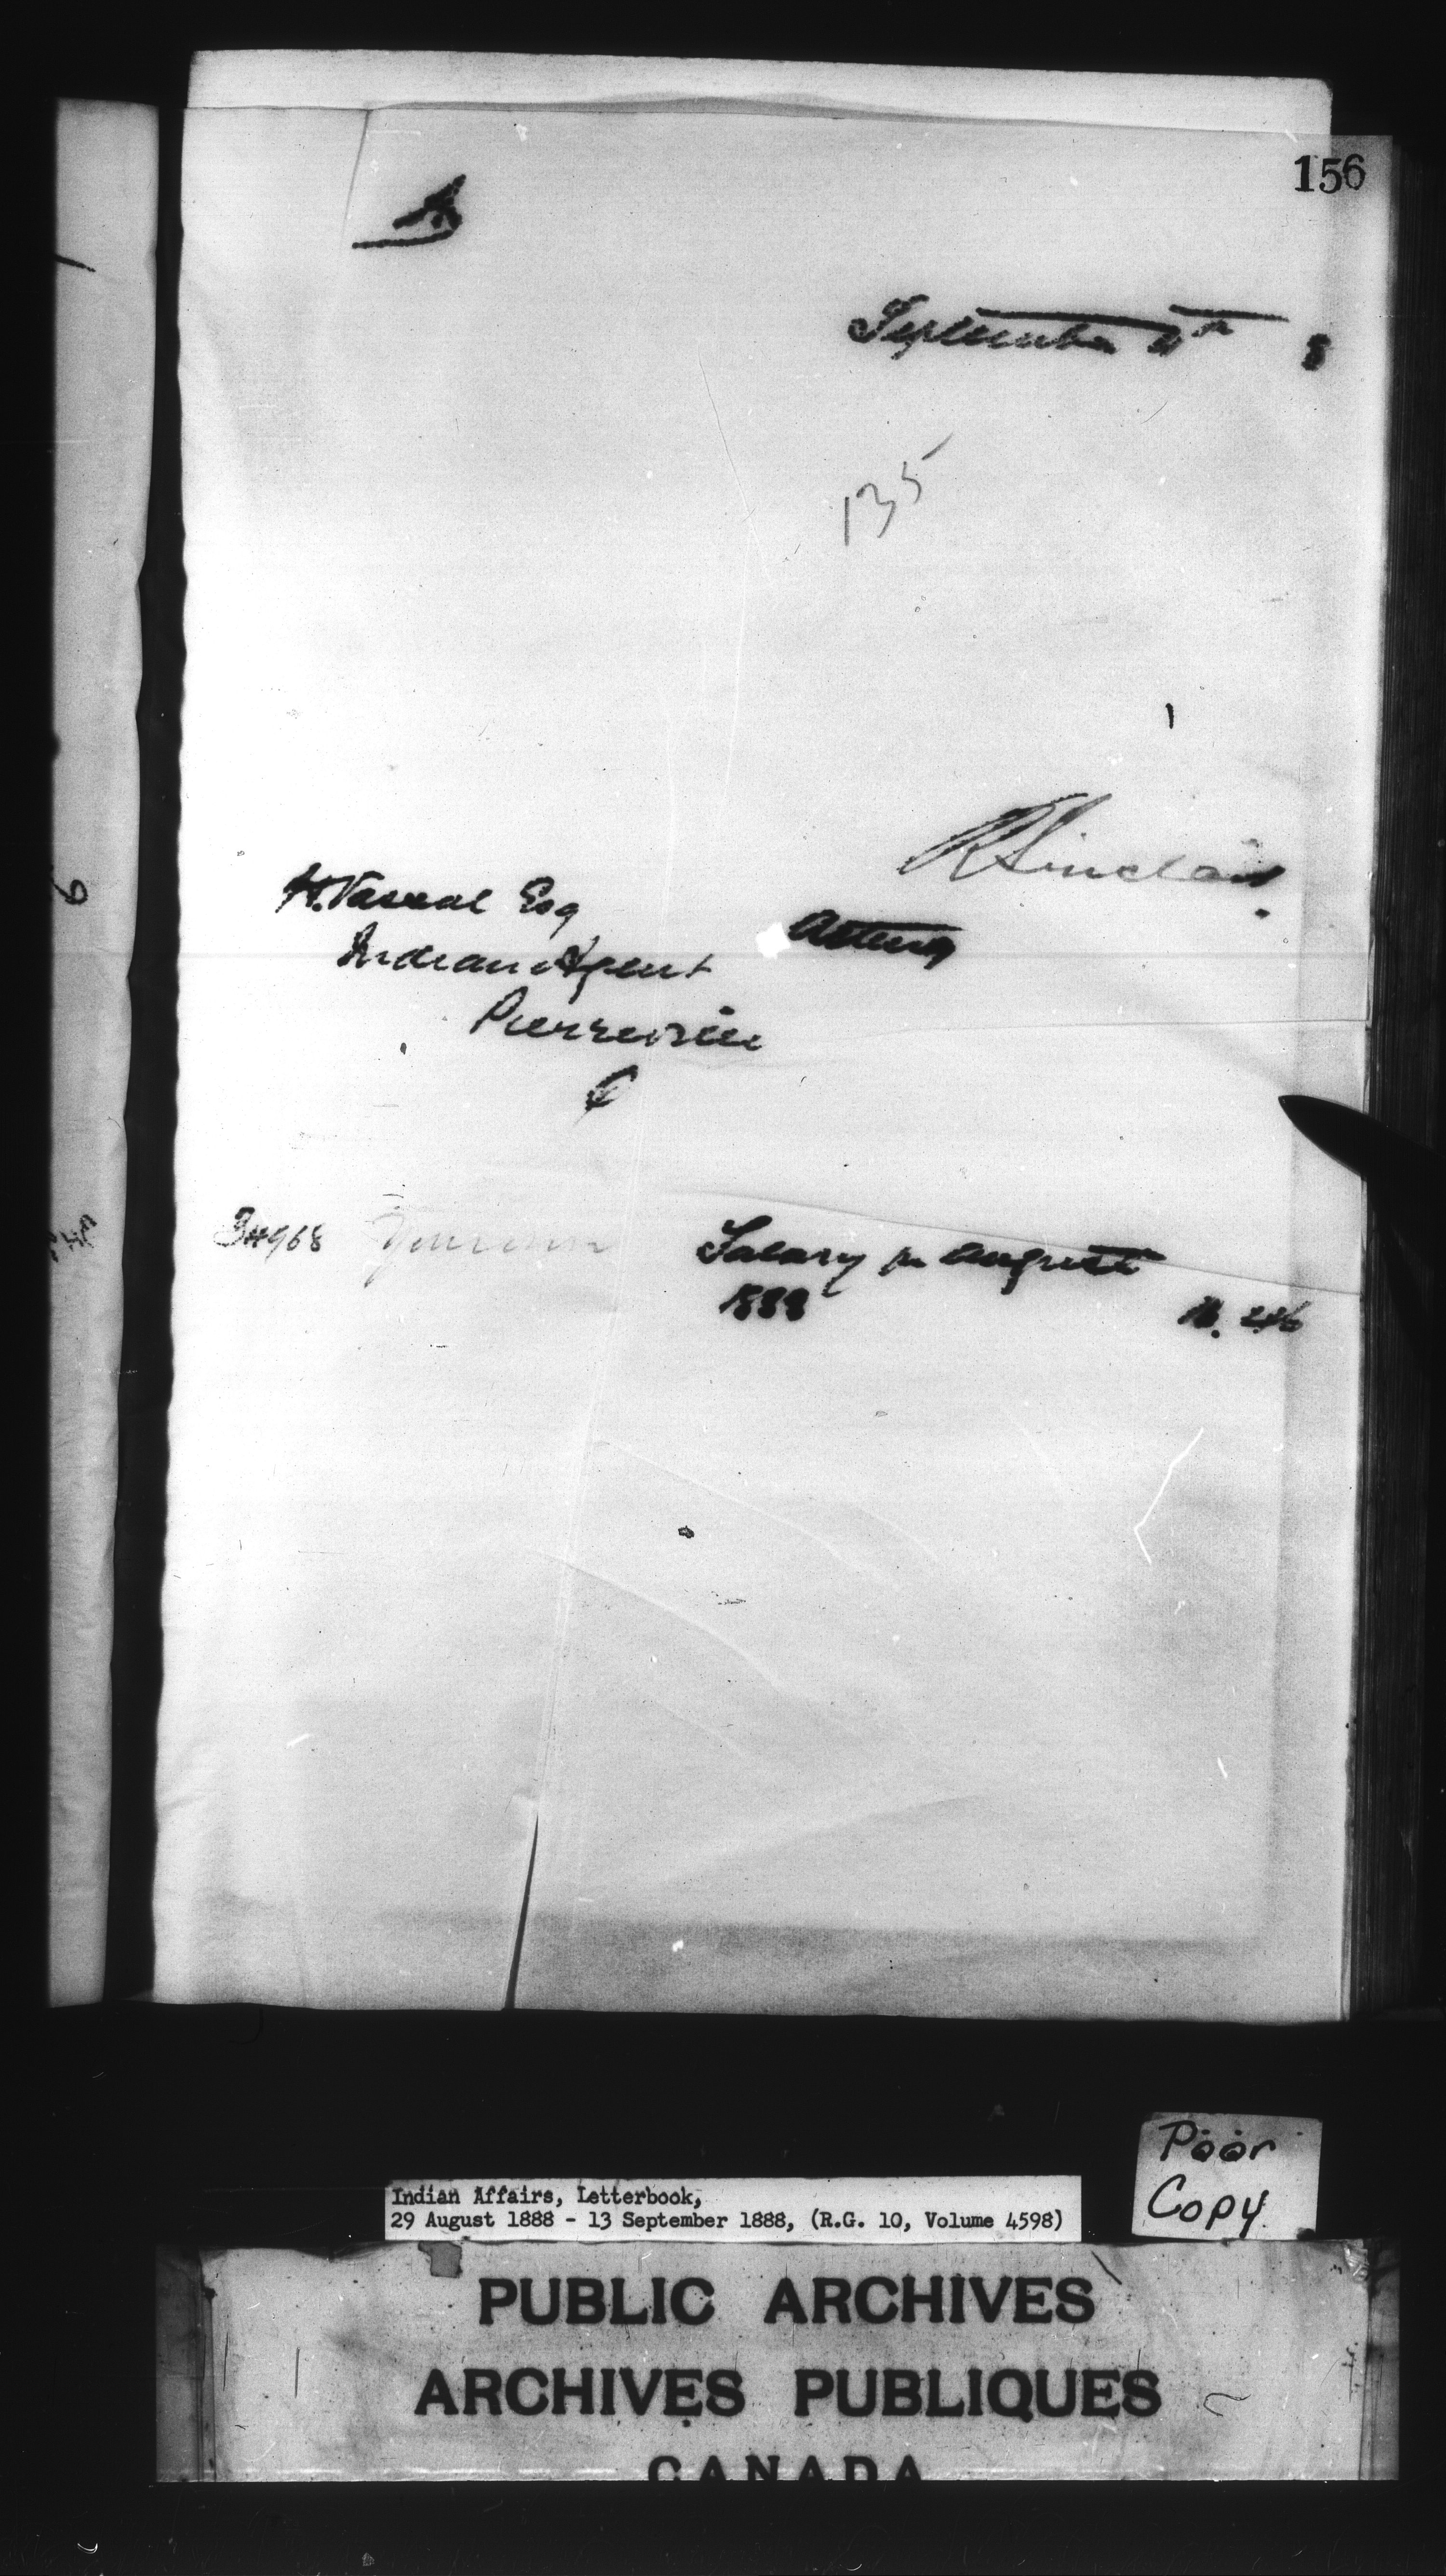 156
September 4th 8
135
R Sinclair
H. Vassal Esq
Acting
Indian Agent
Pierreville
34968
Salary for August
1888
Poor
Copy
Indian Affairs, Letterbook,
29 August 1888 - 13 September 1888, (R.G. 10, Volume 4598)
PUBLIC ARCHIVES
ARCHIVES PUBLIQUES
CANADA